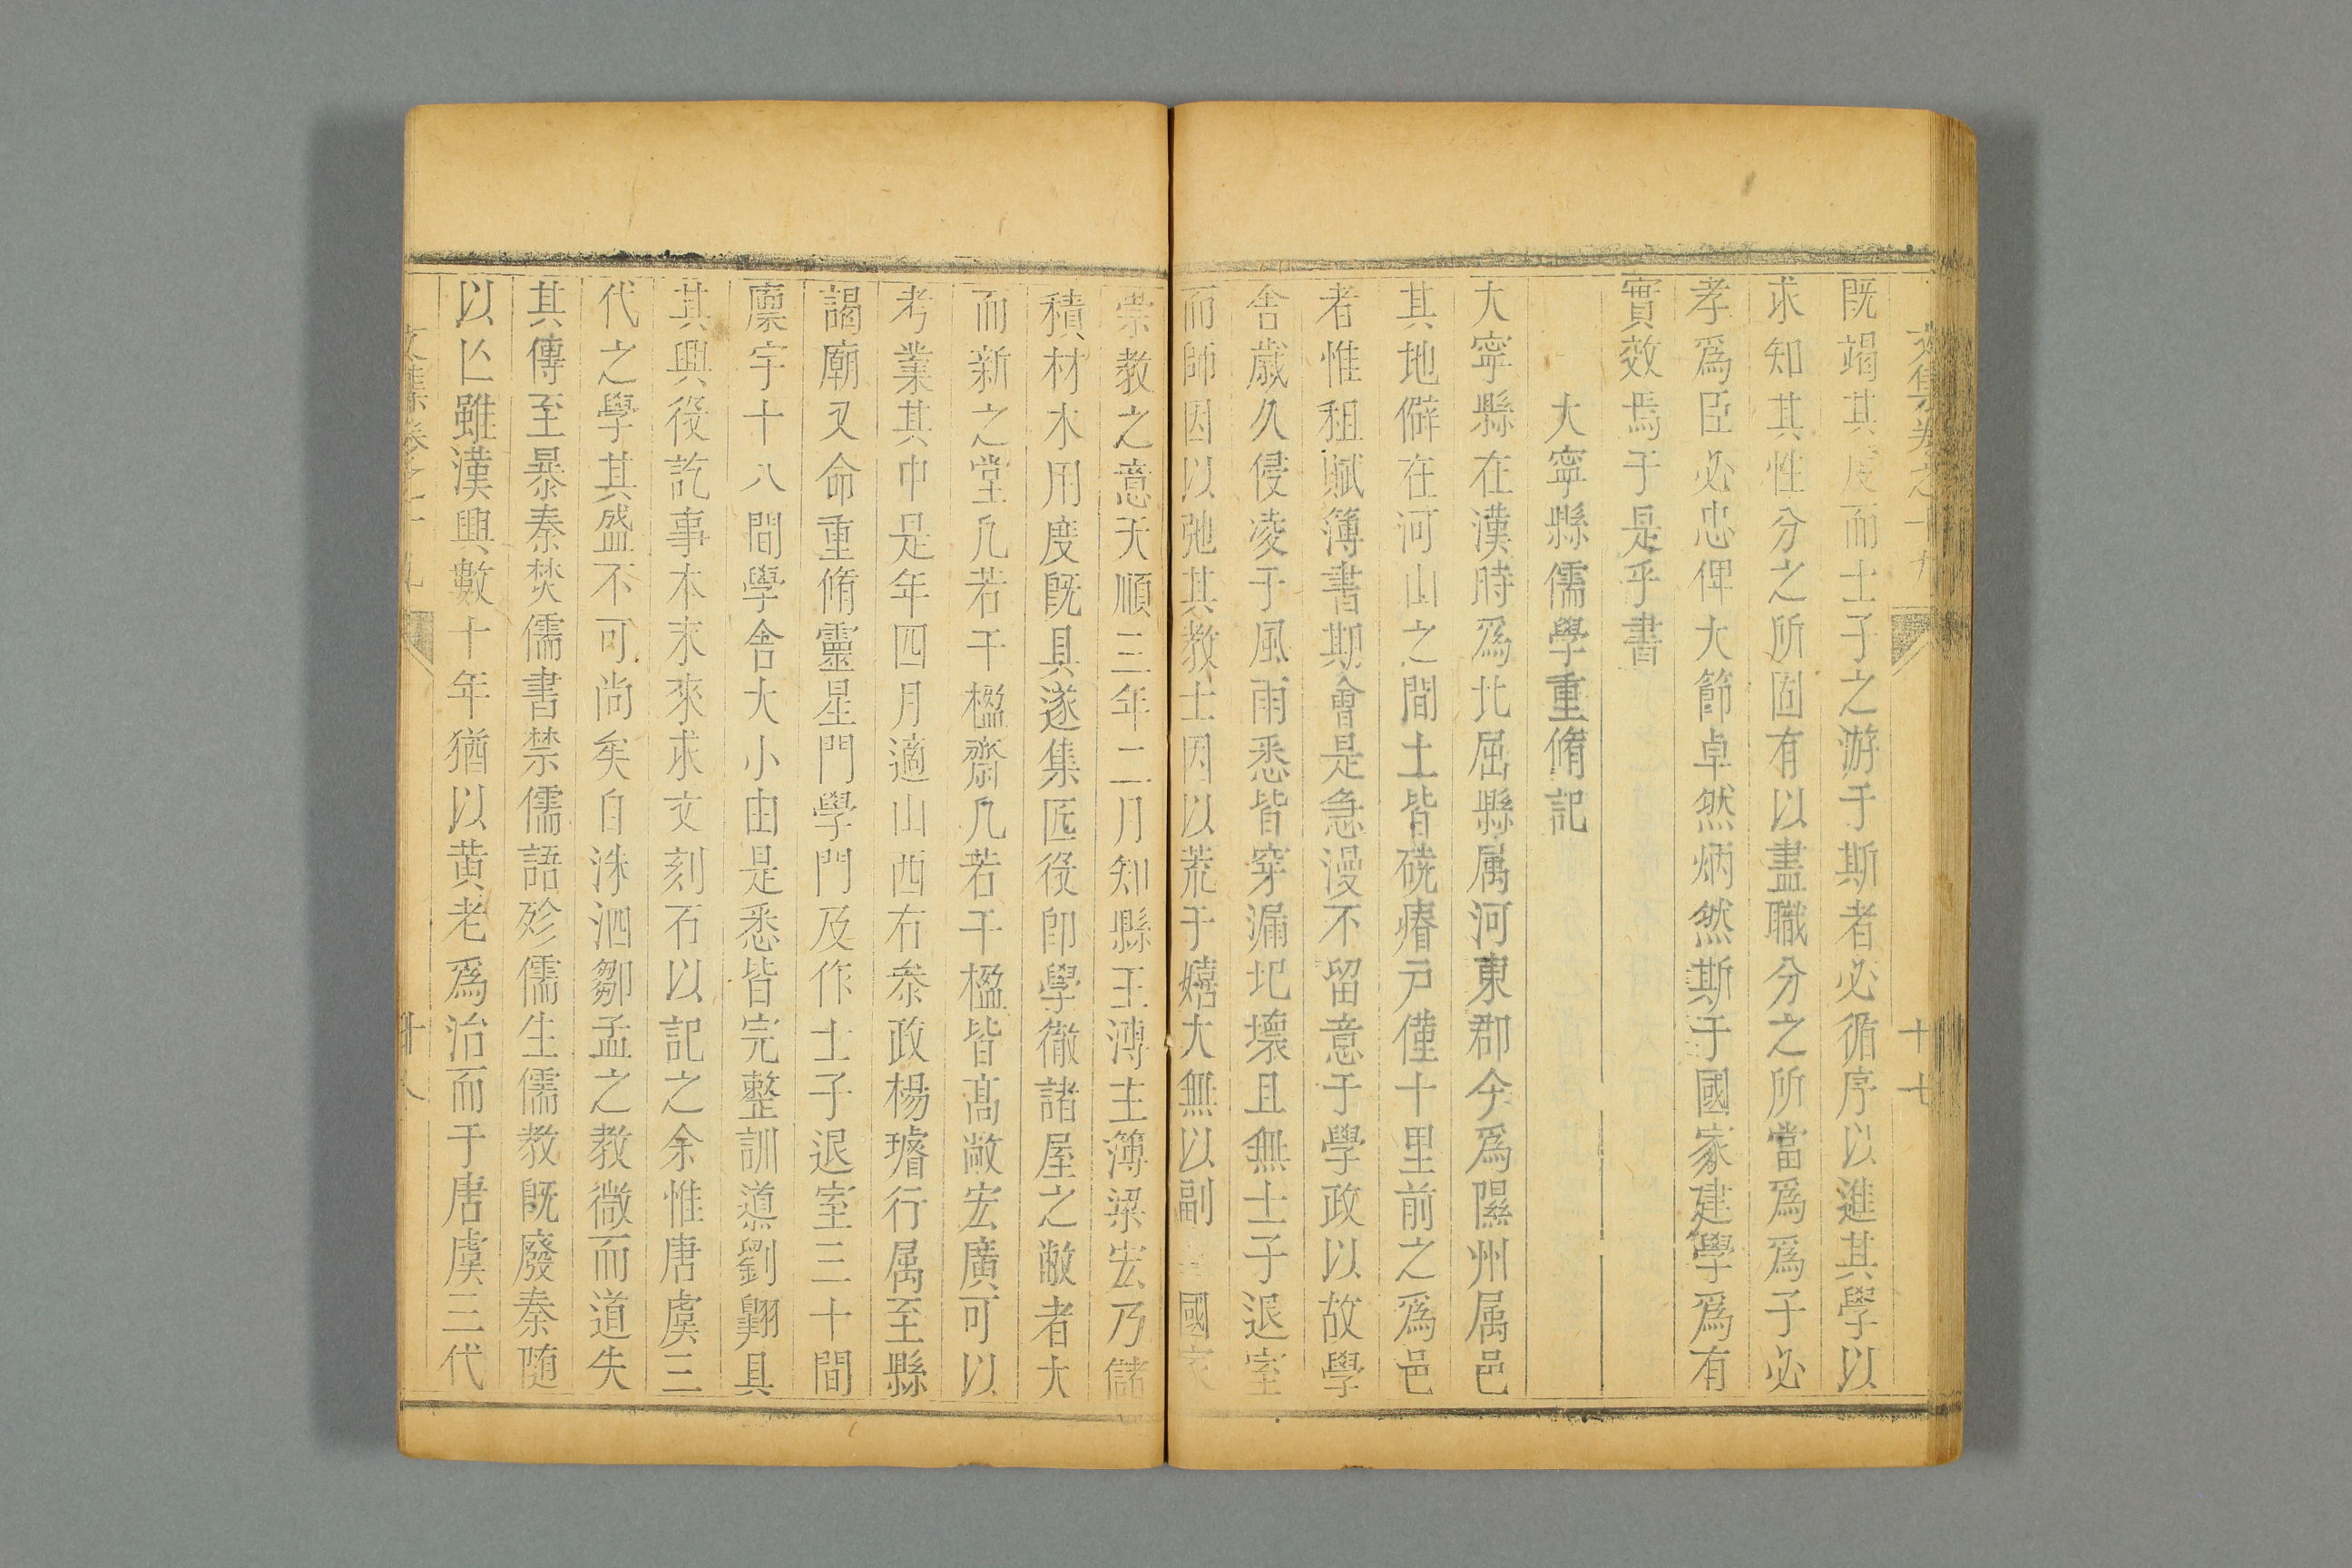 文集卷之十九
十七
既竭其度而士子之游于斯者必循序以進其學以
求知其性分之所固有以盡職分之所當爲爲子必
孝爲臣必忠俾大節卓然炳然斯于國家建學爲有
實效焉于是乎書
大寧縣儒學重脩記
大寧縣在漢時爲北屈縣属河東郡今爲隰州属邑
其地僻在河山之間土皆磽瘠戸僅十里前之爲邑
者惟租賦簿書期會是急漫不留意于學政以故學
舎歳久侵凌于風雨悉皆穿漏圮壞且無士子退室
而師因以弛其教士因以荒于嬉大無以副國家
崇教之意天順三年二月知縣王溥主簿梁宏乃儲
積材木用度既具遂集匠役卽學徹諸屋之敝者大
而新之堂凡若干楹齋凡若干楹皆髙敞宏廣可以
考業其中是年四月適山西右叅政楊璿行属至縣
謁廟又命重脩靈星門學門及作士子退室三十間
廪宇十八間學舎大小由是悉皆完整訓導劉翺具
其興役訖事本末來求文刻石以記之余惟唐虞三
代之學其盛不可尚矣自洙泗鄒孟之教微而道失
其傳至暴秦焚儒書禁儒語殄儒生儒教既廢秦随
以亾雖漢興數十年猶以黄老爲治而于唐虞三代
文集卷之十九
十八